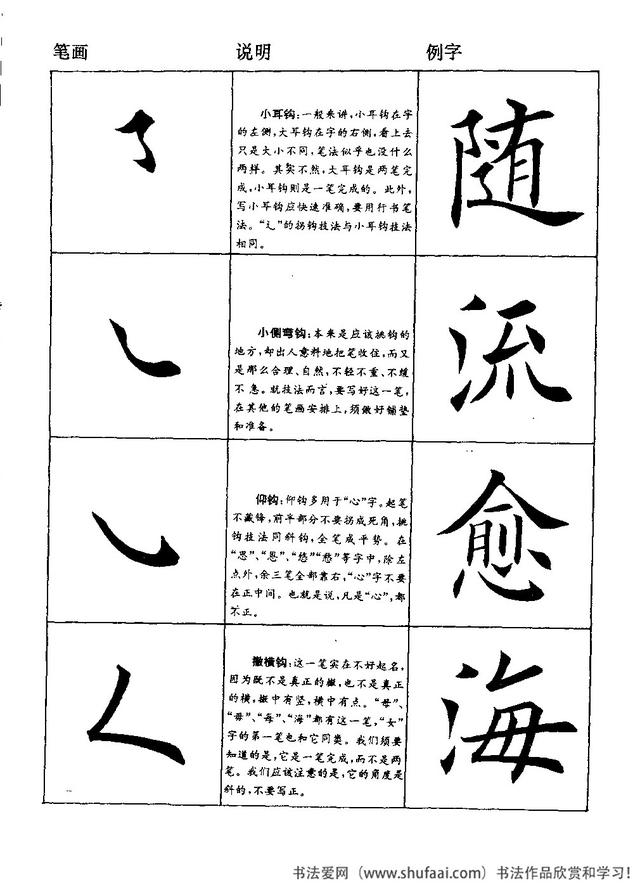 笔画 说明 例字
小耳钩：一般来讲，小耳钩在字
的左侧，大耳钩在字的右侧，看上去
只是大小不同，笔法似乎也没什么
两样。其实不然，大耳钩是两笔完
成，小耳钩则是一笔完成的。此外，
写小耳钩应快速准确，要用行书笔
法。“辶”的拐钩技法与小耳钩技法
相同。
随
小侧弯钩：本来是应该挑钩的
地方，却出人意料地把笔收住，而又
是那么合理、自然，不轻不重、不缓
不急。就技法而言，要写好这一笔，
在其他的笔画安排上，须做好铺垫
和准备。
流
仰钩：仰钩多用于“心”字。起笔
不藏锋，前半部分不要拐成死角，挑
钩技法同斜钩，全笔成平势。在
“思”、“恩”、“悠”“愁”等字中，除左
点外，余三笔全部靠右，“心”字不要
在正中间。也就是说，凡是“心”，都
不正。
愈
撇横钩：这一笔实在不好起名，
因为既不是真正的撇，也不是真正
的横，撇中有竖，横中有点。“母”、
“毋”、“每”、“海”都有这一笔，“女”
字的第一笔也和它同类。我们须要
知道的是，它是一笔完成，而不是两
笔。我们应该注意的是，它的角度是
斜的，不要写正。
海
书法爱网（www.shufaai.com）书法作品欣赏和学习！